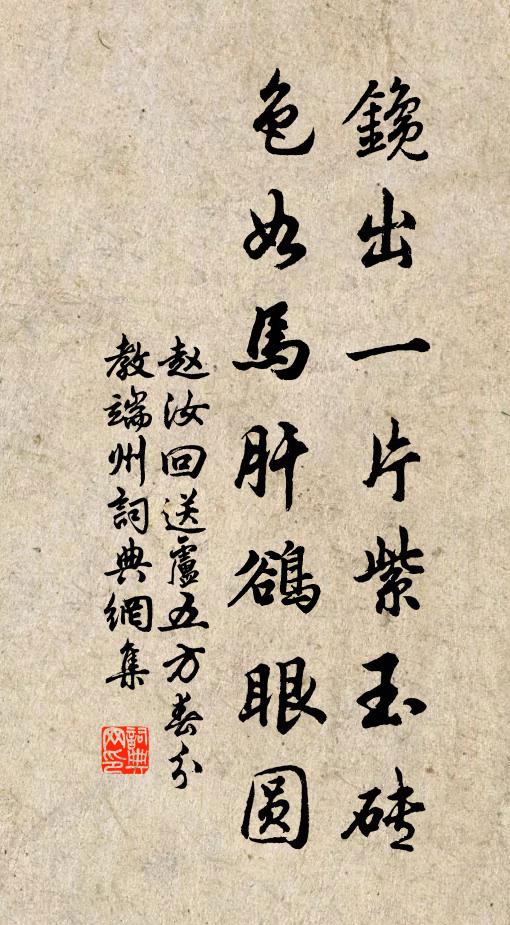 鑱出一片紫玉砖
色如馬肝鵒眼圆
赵汝回送盧五方春分
教端州詞典網集
詞典网印